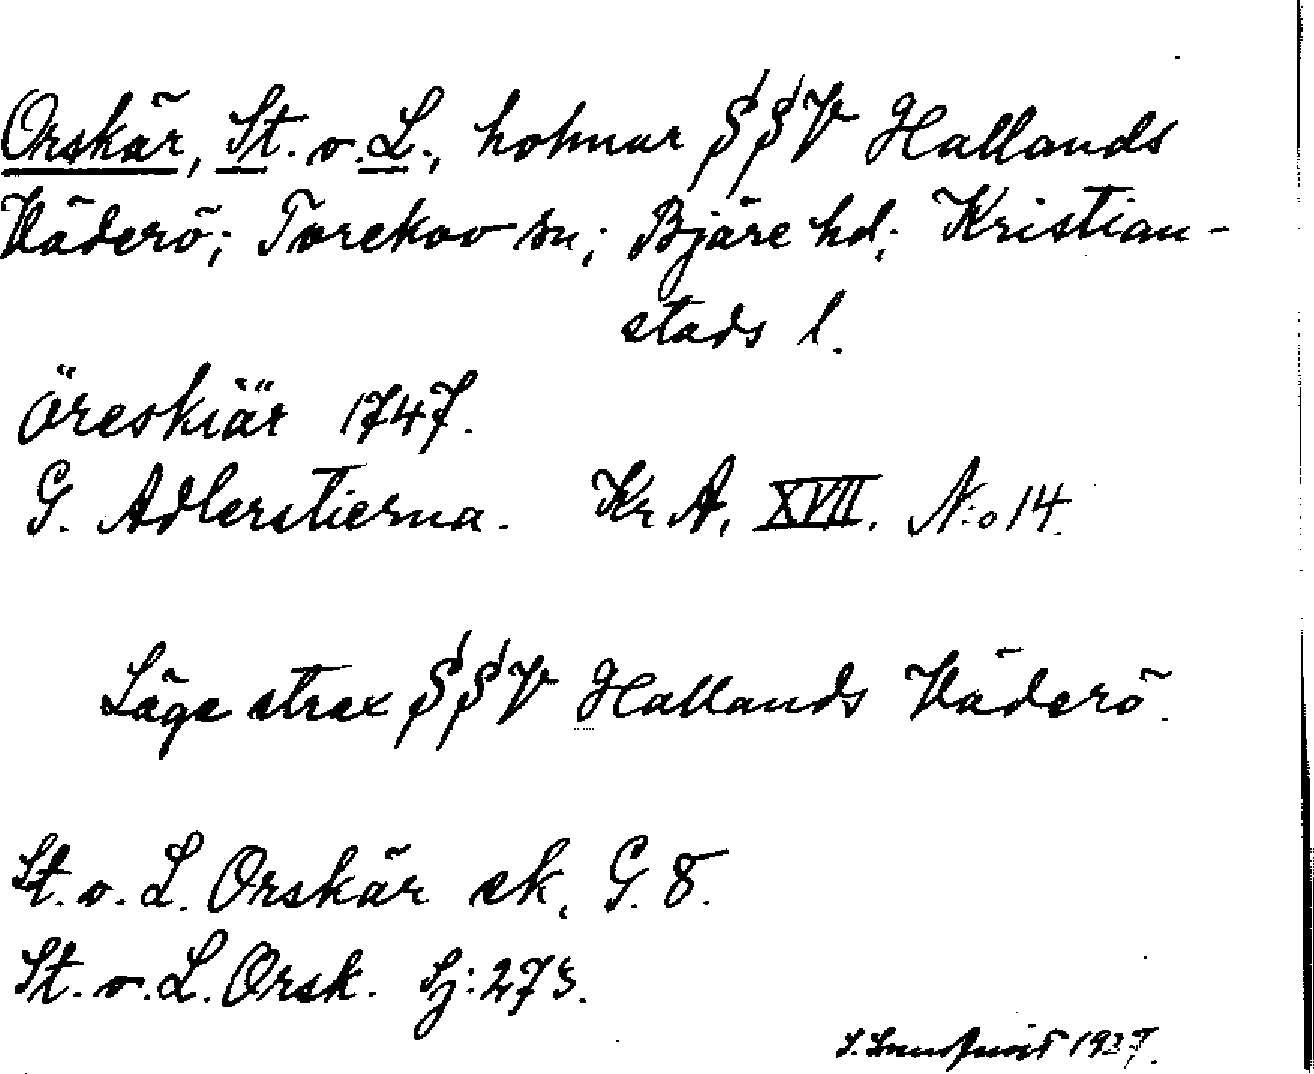 Orskär, St. o. L., holmar SSV Hallands
Väderö; Torekov sn; Bjäre hd; Kristian-
stads l.
Öreskiär 1747.
G. Adlerstierna. Kr. A. XVII. N:o 14.
Läge strax SSV Hallands Väderö.
St. o. L. Orskär ek. G. 8.
St. o. L. Orsk. Sj: 273.
1927.